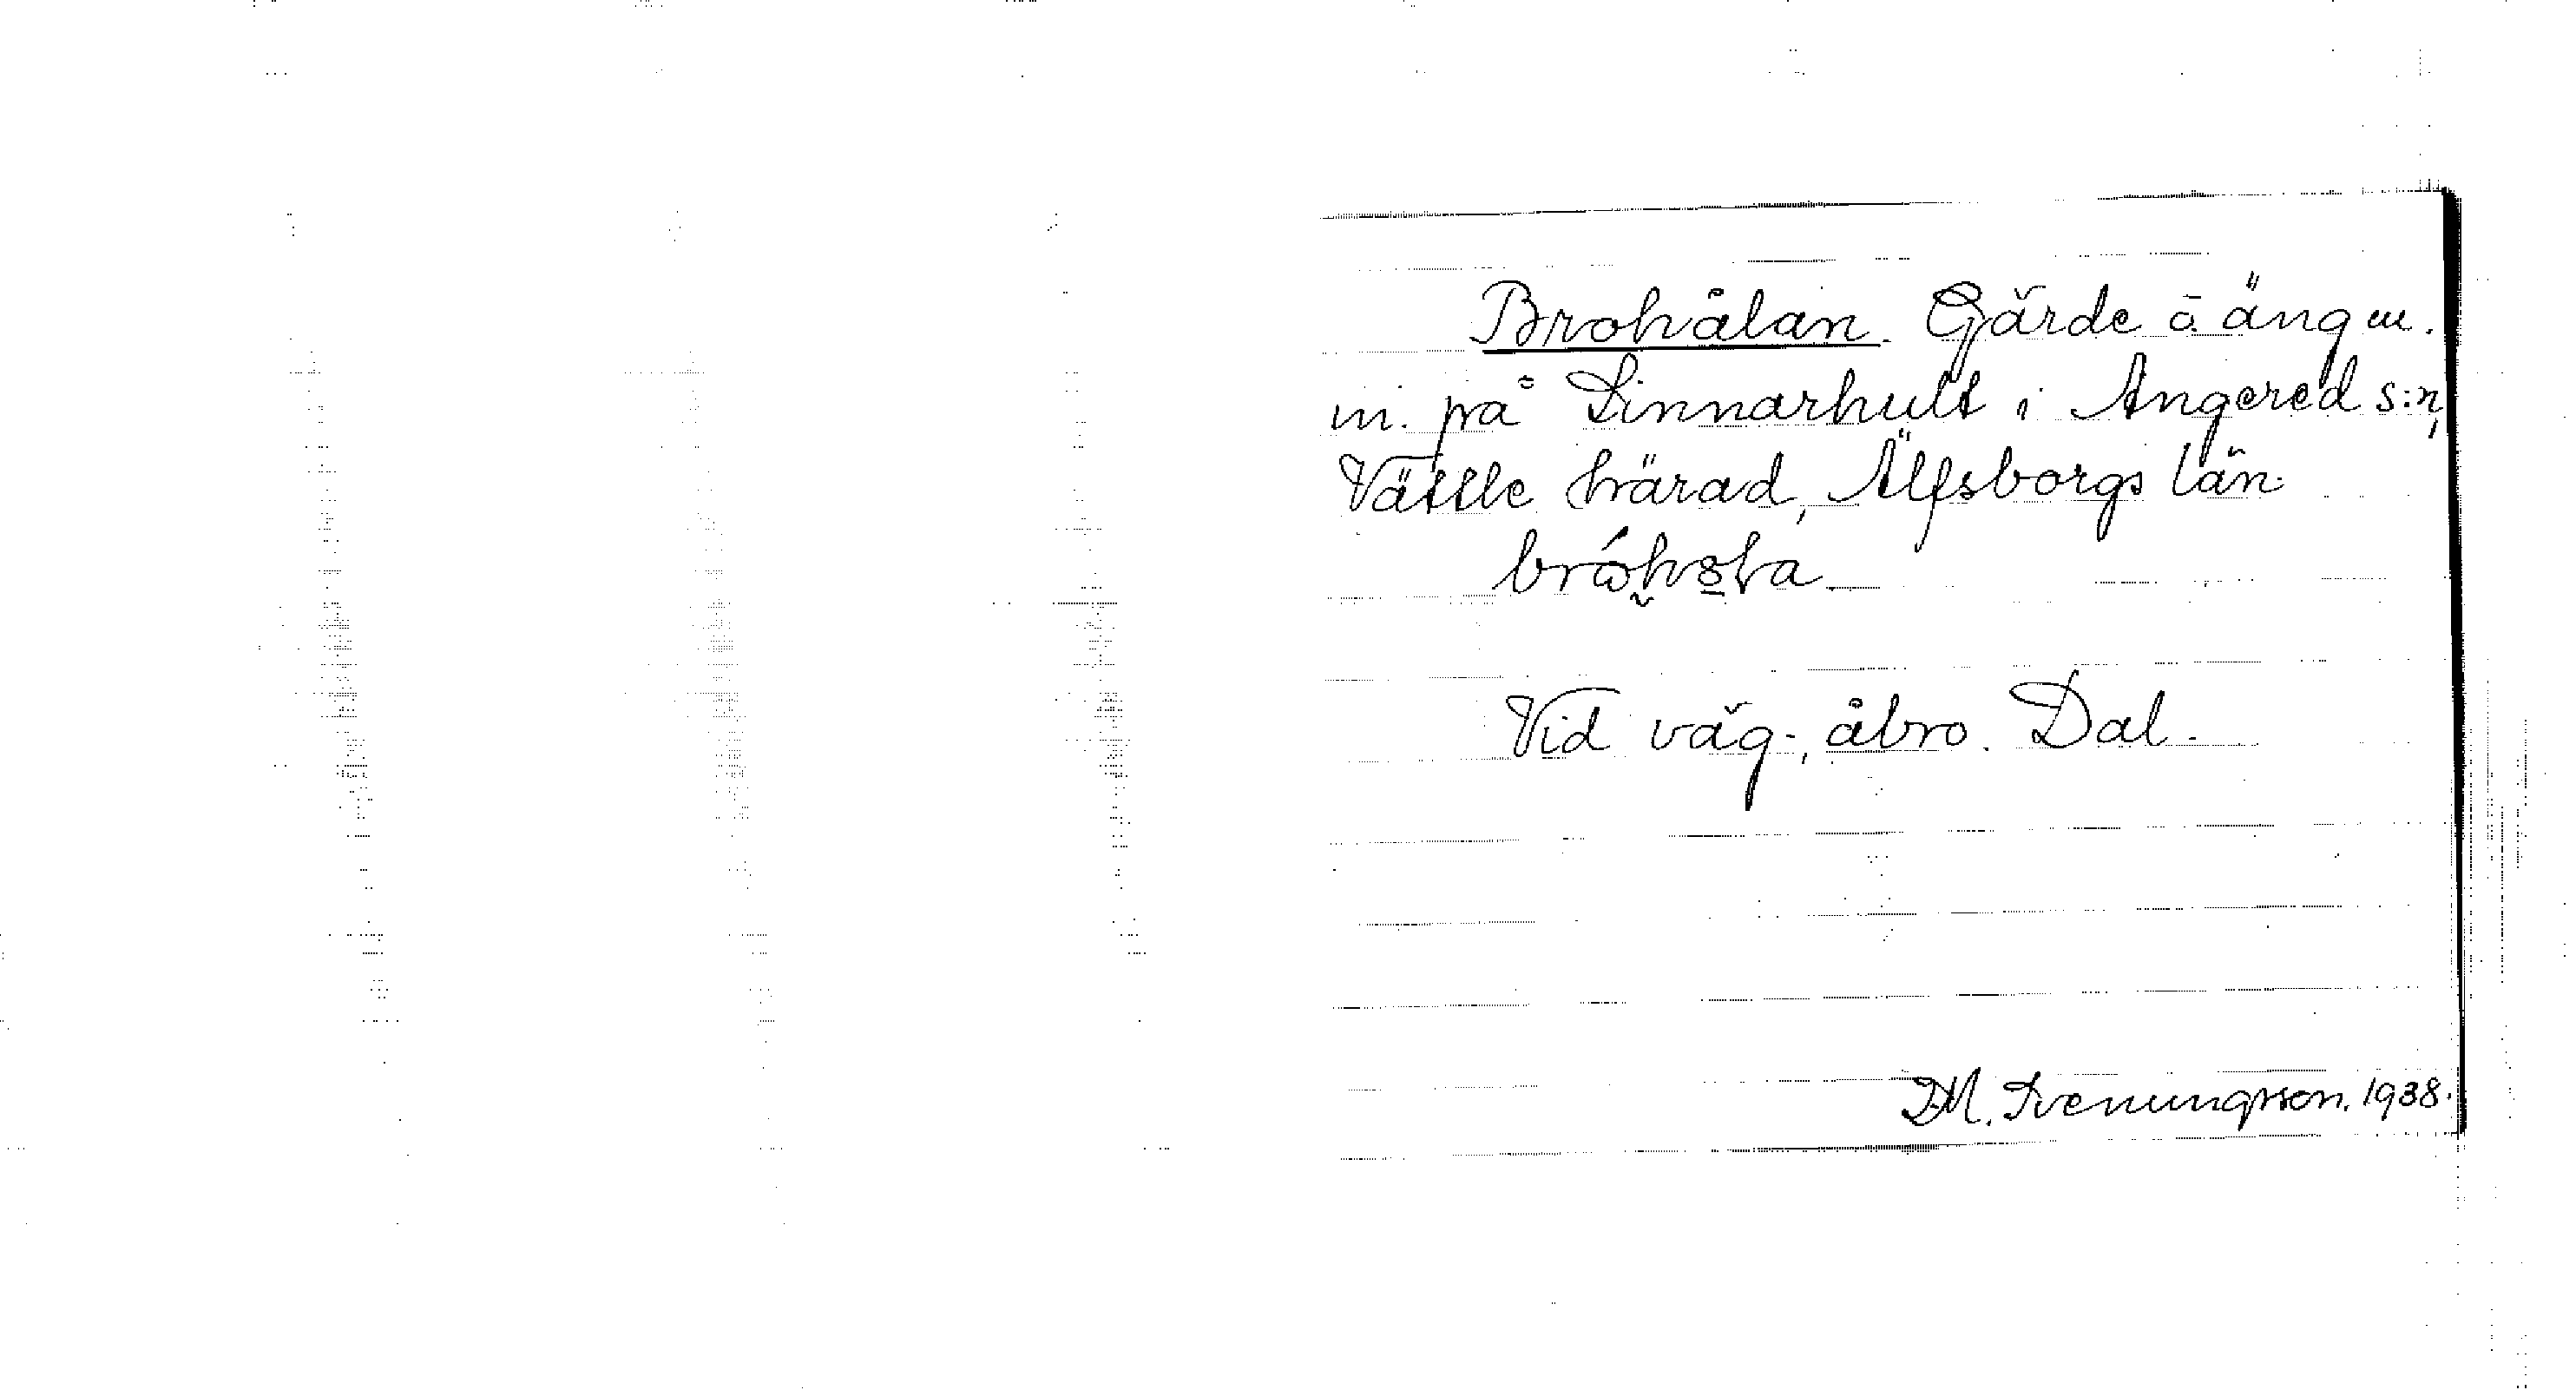 Brohålan. Gärde å äng m.
m. på Linnarhult i Angered s:n,
Vättle härad, Älfsborgs län.
Vid väg-, åbro. Dal.
D.M. Svenungsson. 1938.